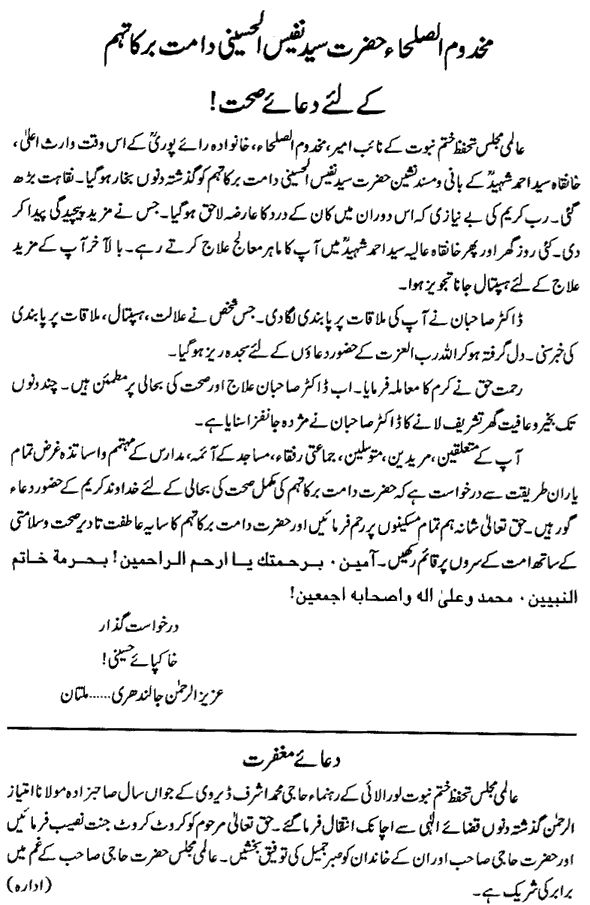 مخدوم الصلحاء حضرت سید نفیس الحسینی دامت برکاتہم
کے لئے دعائے صحت!
عالمی مجلس تحفظ ختم نبوت کے نائب امیر، مخدوم الصلحاء، خانوادہ رائے پوریؒ کے اس وقت وارث اعلیٰ،
خانقاہ سید احمد شہیدؒ کے بانی و مسند نشین حضرت سید نفیس الحسینی دامت برکاتہم کو گذشتہ دنوں بخار ہوگیا۔ نقاہت بڑھ
گئی۔ رب کریم کی بے نیازی کہ اس دوران میں کان کے درد کا عارضہ لاحق ہوگیا۔ جس نے مزید پیچیدگی پیدا کر
دی۔ کئی روز گھر اور پھر خانقاہ عالیہ سید احمد شہیدؒ میں آپ کا ماہر معالج علاج کرتے رہے۔ بالآخر آپ کے مزید
علاج کے لئے ہسپتال جانا تجویز ہوا۔
ڈاکٹر صاحبان نے آپ کی ملاقات پر پابندی لگادی۔ جس شخص نے علالت، ہسپتال، ملاقات پر پابندی
کی خبر سنی۔ دل گرفتہ ہوکر اللہ رب العزت کے حضور دعاؤں کے لئے سجدہ ریز ہوگیا۔
رحمت حق نے کرم کا معاملہ فرمایا۔ اب ڈاکٹر صاحبان علاج اور صحت کی بحالی پر مطمئن ہیں۔ چند دنوں
تک بخیر و عافیت گھر تشریف لانے کا ڈاکٹر صاحبان نے مژدہ جانفزا سنایا ہے۔
آپ کے متعلقین، مریدین، متوسلین، جماعتی رفقاء، مساجد کے آئمہ، مدارس کے مہتمم و اساتذہ غرض تمام
یاران طریقت سے درخواست ہے کہ حضرت دامت برکاتہم کی مکمل صحت کی بحالی کے لئے خداوند کریم کے حضور دعاء
گو رہیں۔ حق تعالیٰ شانہ ہم تمام مسکینوں پر رحم فرمائیں اور حضرت دامت برکاتہم کا سایہ عاطفت تادیر صحت و سلامتی
کے ساتھ امت کے سروں پر قائم رکھیں۔ آمین۔ برحمتك یا ارحم الراحمین! بحرمة خاتم
النبیین۔ محمد وعلیٰ اله واصحابه اجمعین!
درخواست گذار
خاکپائے حسینی!
عزیز الرحمٰن جالندھری ...... ملتان
دعائے مغفرت
عالمی مجلس تحفظ ختم نبوت لورالائی کے رہنماء حاجی محمد اشرف ڈیروی کے جواں سال صاحبزادہ مولانا امتیاز
الرحمٰن گذشتہ دنوں قضائے الٰہی سے اچانک انتقال فرماگئے۔ حق تعالیٰ مرحوم کو کروٹ کروٹ جنت نصیب فرمائیں
اور حضرت حاجی صاحب اور ان کے خاندان کو صبر جمیل کی توفیق بخشیں۔ عالمی مجلس حضرت حاجی صاحب کے غم میں
برابر کی شریک ہے۔ (ادارہ)